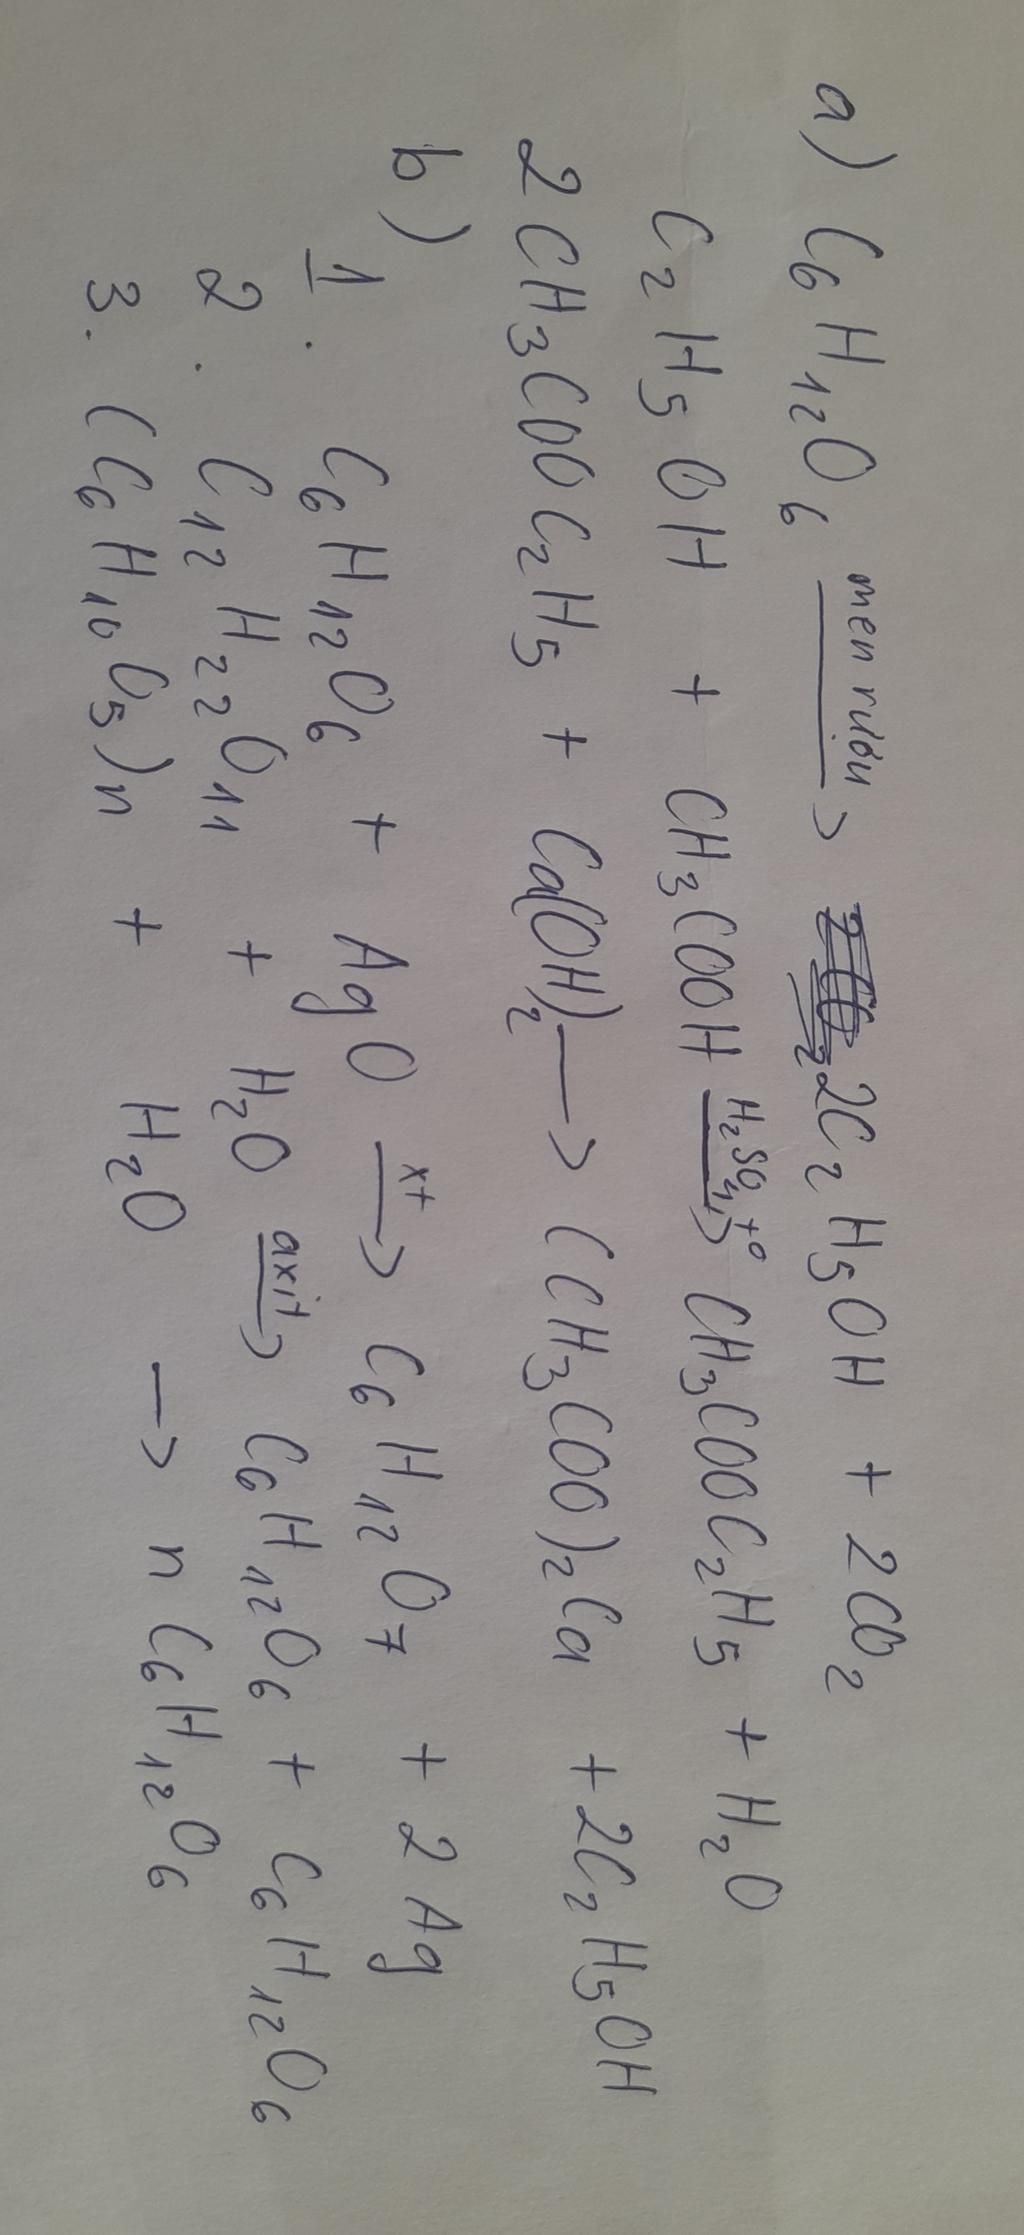 a) C6H12O6 men rượu → 2C2H5OH + 2CO2
C2H5OH + CH3COOH H2SO4, t° → CH3COOC2H5 + H2O
2CH3COOC2H5 + Ca(OH)2 → (CH3COO)2Ca + 2C2H5OH
b)
1. C6H12O6 + AgO xt → C6H12O7 + 2Ag
2. C12H22O11 + H2O axit → C6H12O6 + C6H12O6
3. (C6H10O5)n + H2O → n C6H12O6